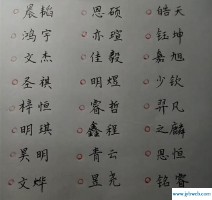 晨韬 恩硕 皓天
鸿宇 亦瑄 钰坤
文杰 佳毅 嘉旭
圣祺 明煜 少钦
梓恒 睿哲 羿凡
明琪 鑫程 之麟
昊明 青云 思恒
文烨 昱尧 铭睿